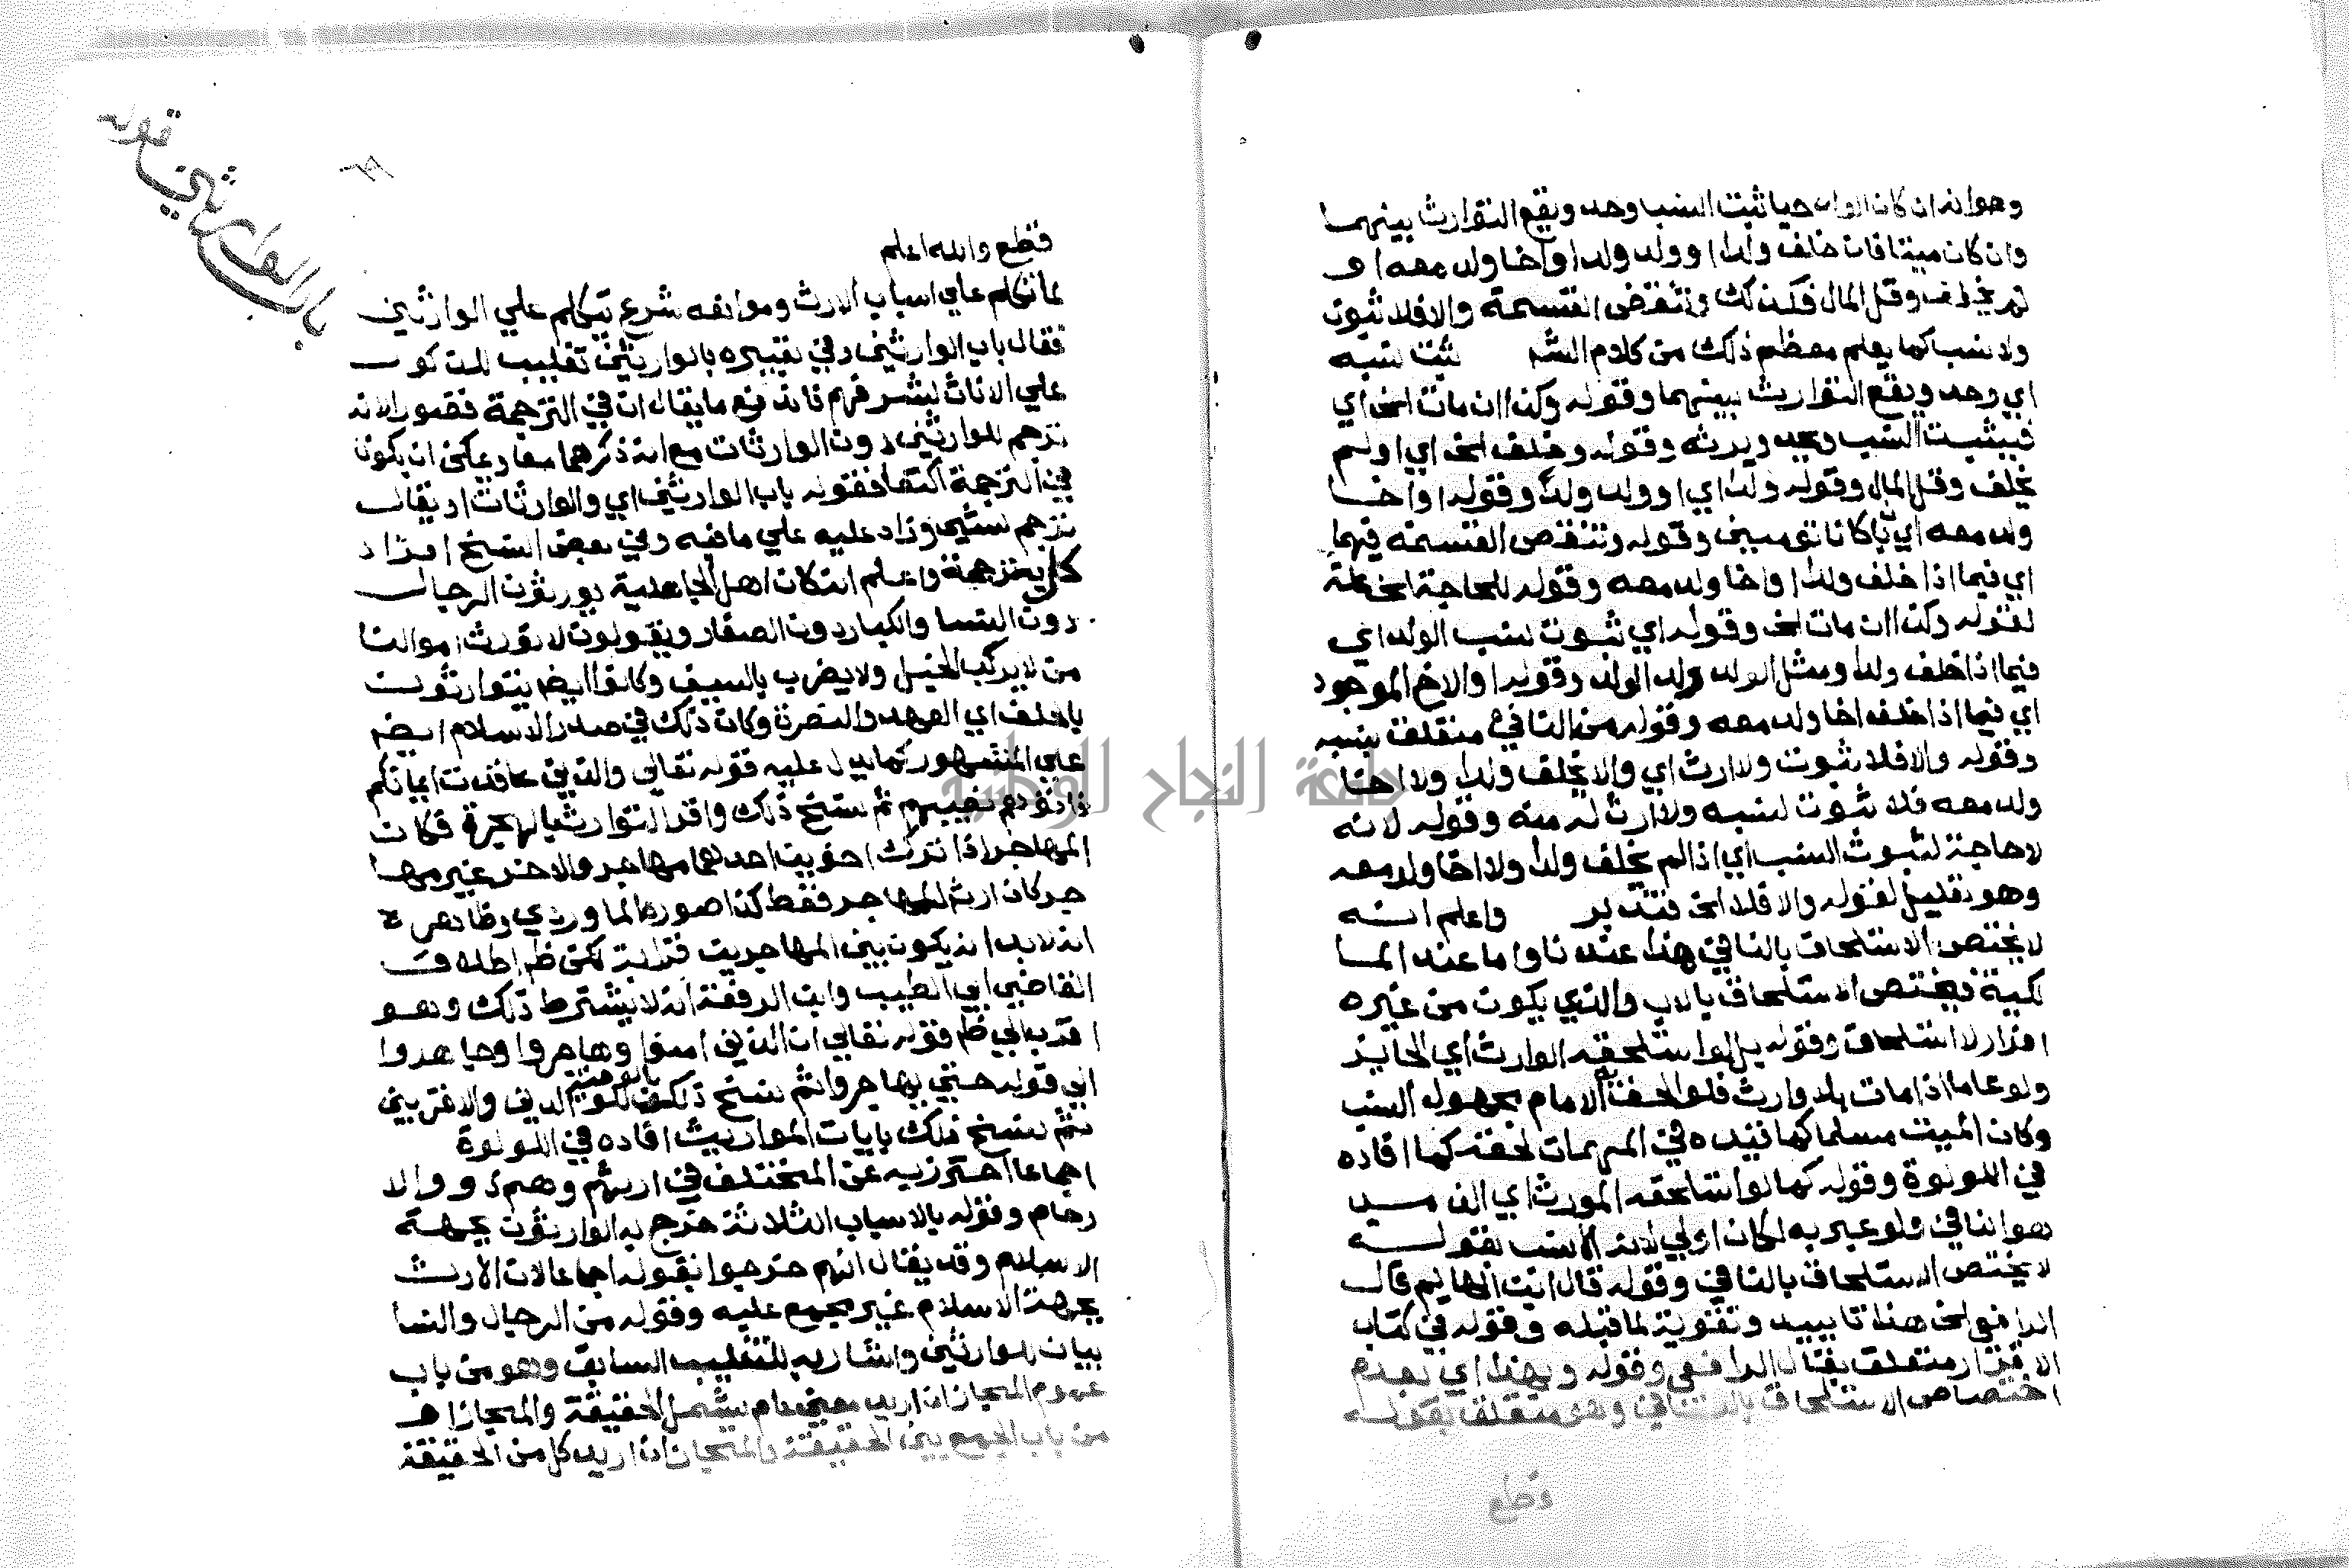 وهو انه ان كان الولد حيا ثبت النسب وحده ويقع التوارث بينهما
وان كان ميتا فان خلف ولدا او ولد ولد او اخا ولد معه او
لم يخلف وقل المال فكذلك وتنقض القسمة والا فلا ثبوت
ولا نسب كما يعلم معظم ذلك من كلام الش ثبت نسبه
اي وحده ويقع التوارث بينهما وقوله وكذا ان مات الخ اي
فيثبت النسب وحده ويرثه وقوله وخلف الخ اي او لم
يخلف وقل المال وقوله ولدا اي او ولد ولد وقوله او اخا
ولد معه اي بان كانا توميين وقوله وتنقض القسمة فيهما
اي فيما اذا خلف ولدا او اخا ولد معه وقوله للحاجة الخ علة
لقوله وكذا ان مات الخ وقوله اي ثبوت نسب الولد اي
فيما اذا خلف ولدا ومثل الولد ولد الولد وقوله او الاخ الموجود
اي فيما اذا خلف اخا ولد معه وقوله من النافي متعلق بنسبه
وقوله والا فلا ثبوت ولا ارث اي والا يخلف ولدا ولا اخا
ولد معه فلا ثبوت لنسبه ولا ارث له منه وقوله لانه
لا حاجة لثبوت النسب اي اذا لم يخلف ولدا ولا اخا ولد معه
وهو تعليل لقوله والا فلا الخ فتدبر واعلم انه
لا يختص الاستلحاق بالنافي هذا عندنا واما عند الما
لكية فيختص الاستلحاق بالاب والذي يكون من غيره
اقرار لا استلحاق وقوله بل لو استلحقه الوارث اي الحايز
ولو عاما اذا مات بلا وارث فلو الحق به الامام مجهول النسب
وكان الميت مسلما كما قيده في المهمات لحقه كما افاده
في اللولوة وقوله كما لو استلحقه المورث اي الذي
هو النافي ولو عبر به لكان اولي لانه الانسب بقوله
لا يختص الاستلحاق بالنافي وقوله قال ابن الهايم قال
الرافعي الخ هذا تاييد وتقوية لما قبله وقوله في كتاب
الاقرار متعلق بقال الرافعي وقوله وبهذا اي بعدم
اختصاص الاستلحاق بالنافي وهو متعلق بقوله
قطع
باب الوارثين قوله
قطع والله اعلم
لما تكلم علي اسباب الارث وموانعه شرع يتكلم علي الوارثين
فقال باب الوارثين وفي تعبيره بالوارثين تغليب للذكور
علي الاناث لشرفهم فاندفع ما يقال ان في الترجمة قصورا لانه
ترجم للوارثين دون الوارثات مع انه ذكرهما معا ويمكن ان يكون
في الترجمة اكتفا فقوله باب الوارثين اي والوارثات او يقال
ترجم لشي وزاد عليه علي ما فيه وفي بعض النسخ افراد
كل بترجمة واعلم انه كان اهل الجاهلية يورثون الرجال
دون النسا والكبار دون الصغار ويقولون لا نورث اموالنا
من لا يركب الخيل ولا يضرب بالسيف وكانوا ايضا يتوارثون
بالحلف اي العهد والنصرة وكان ذلك في صدر الاسلام ايضا
علي المشهور كما يدل عليه قوله تعالي والذين عاقدت ايمانكم
فاتوهم نصيبهم ثم نسخ ذلك واقر التوارث بالهجرة فكان
المهاجر اذا ترك اخوين احدهما مهاجر والاخر غير مها
جر كان ارثه للمهاجر فقط كذا صوره الماوردي وظاهره
انه لا بد ان يكون بين المهاجرين قرابة لكن ظ اطلاق
القاضي ابي الطيب وابن الرفعة انه لا يشترط ذلك وهو
اقرب الي ظ قوله تعالي ان الذين امنوا وهاجروا وجاهدوا
الي قوله حتي يهاجروا ثم نسخ ذلك بالوصية للوالدين والاقربين
ثم نسخ ذلك بايات المواريث افاده في اللولوة
اجماعا احترز به عن المختلف في ارثهم وهم ذووا الا
رحام وقوله بالاسباب الثلاثة خرج به الوارثون بجهة
الاسلام وقد يقال انهم خرجوا بقوله اجماعا لان الارث
بجهة الاسلام غير مجمع عليه وقوله من الرجال والنسا
بيان للوارثين واشار به للتغليب السابق وهو من باب
عموم المجاز ان اريد معني عام يشمل الحقيقة والمجاز او
من باب الجمع بين الحقيقة والمجاز ان اريد كل من الحقيقة
جامعة النجاح الوطنية